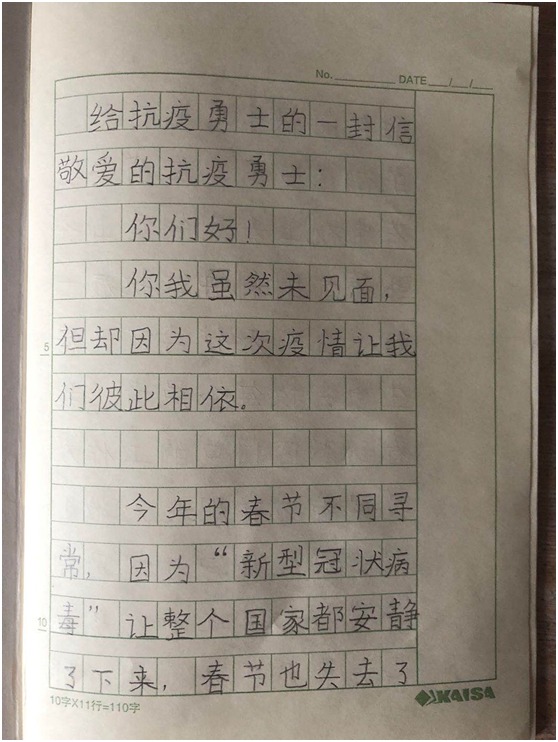 No. DATE / /
给抗疫勇士的一封信
敬爱的抗疫勇士：
你们好！
你我虽然未见面，
5
但却因为这次疫情让我
们彼此相依。
今年的春节不同寻
常，因为“新型冠状病
10
毒”让整个国家都安静
了下来，春节也失去了
10字X11行=110字
KAISA